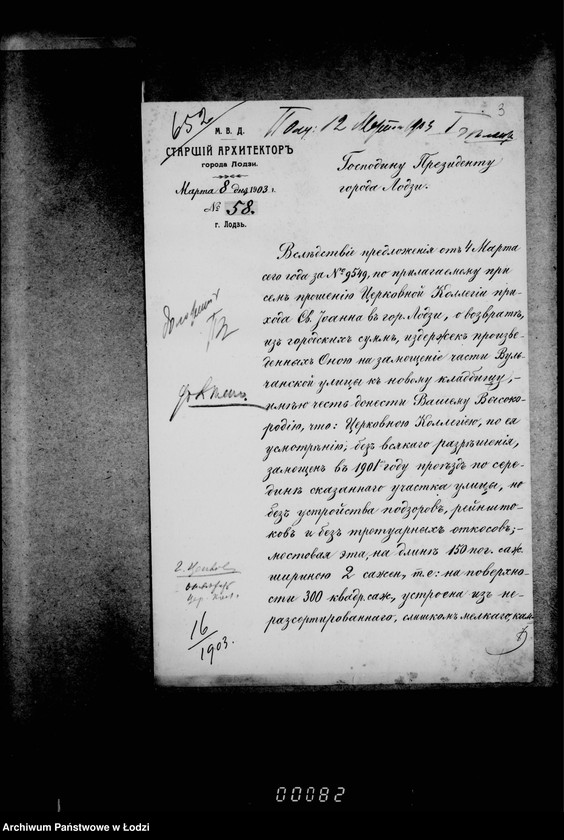 652
3
Пол: 12 Марта 1903 г.
М. В. Д.
СТАРШІЙ АРХИТЕКТОРЪ
города Лодзи.
Марта 8 дня 1903 г.
№ 58.
г. Лодзь.
Господину Президенту
города Лодзи.
Вслѣдствіе предложенія отъ 4 Марта
сего года за № 9549, по прилагаемому при
семъ прошенію Церковной Коллегіи при-
хода Св. Іоанна въ гор. Лодзи, о возвратѣ,
изъ городскихъ суммъ, издержекъ произве-
денныхъ Оною на замощеніе части Вуль-
чанской улицы къ новому кладбищу,-
имѣю честь донести Вашему Высоко-
родію, что: Церковною Коллегіею, по ея
усмотрѣнію, безъ всякаго разрѣшенія,
замощенъ въ 1901 году проѣздъ по сере-
динѣ сказаннаго участка улицы, но
безъ устройства подзоровъ, рейншто-
ковъ и безъ тротуарныхъ откосовъ;-
мостовая эта, на длинѣ 150 пог. саж.
шириною 2 сажен, т.е: на поверхно-
сти 300 квадр. саж, устроена изъ не-
разсертированнаго, слишкомъ мелкаго, кам-
16
1903.
00082
Archiwum Państwowe w Łodzi